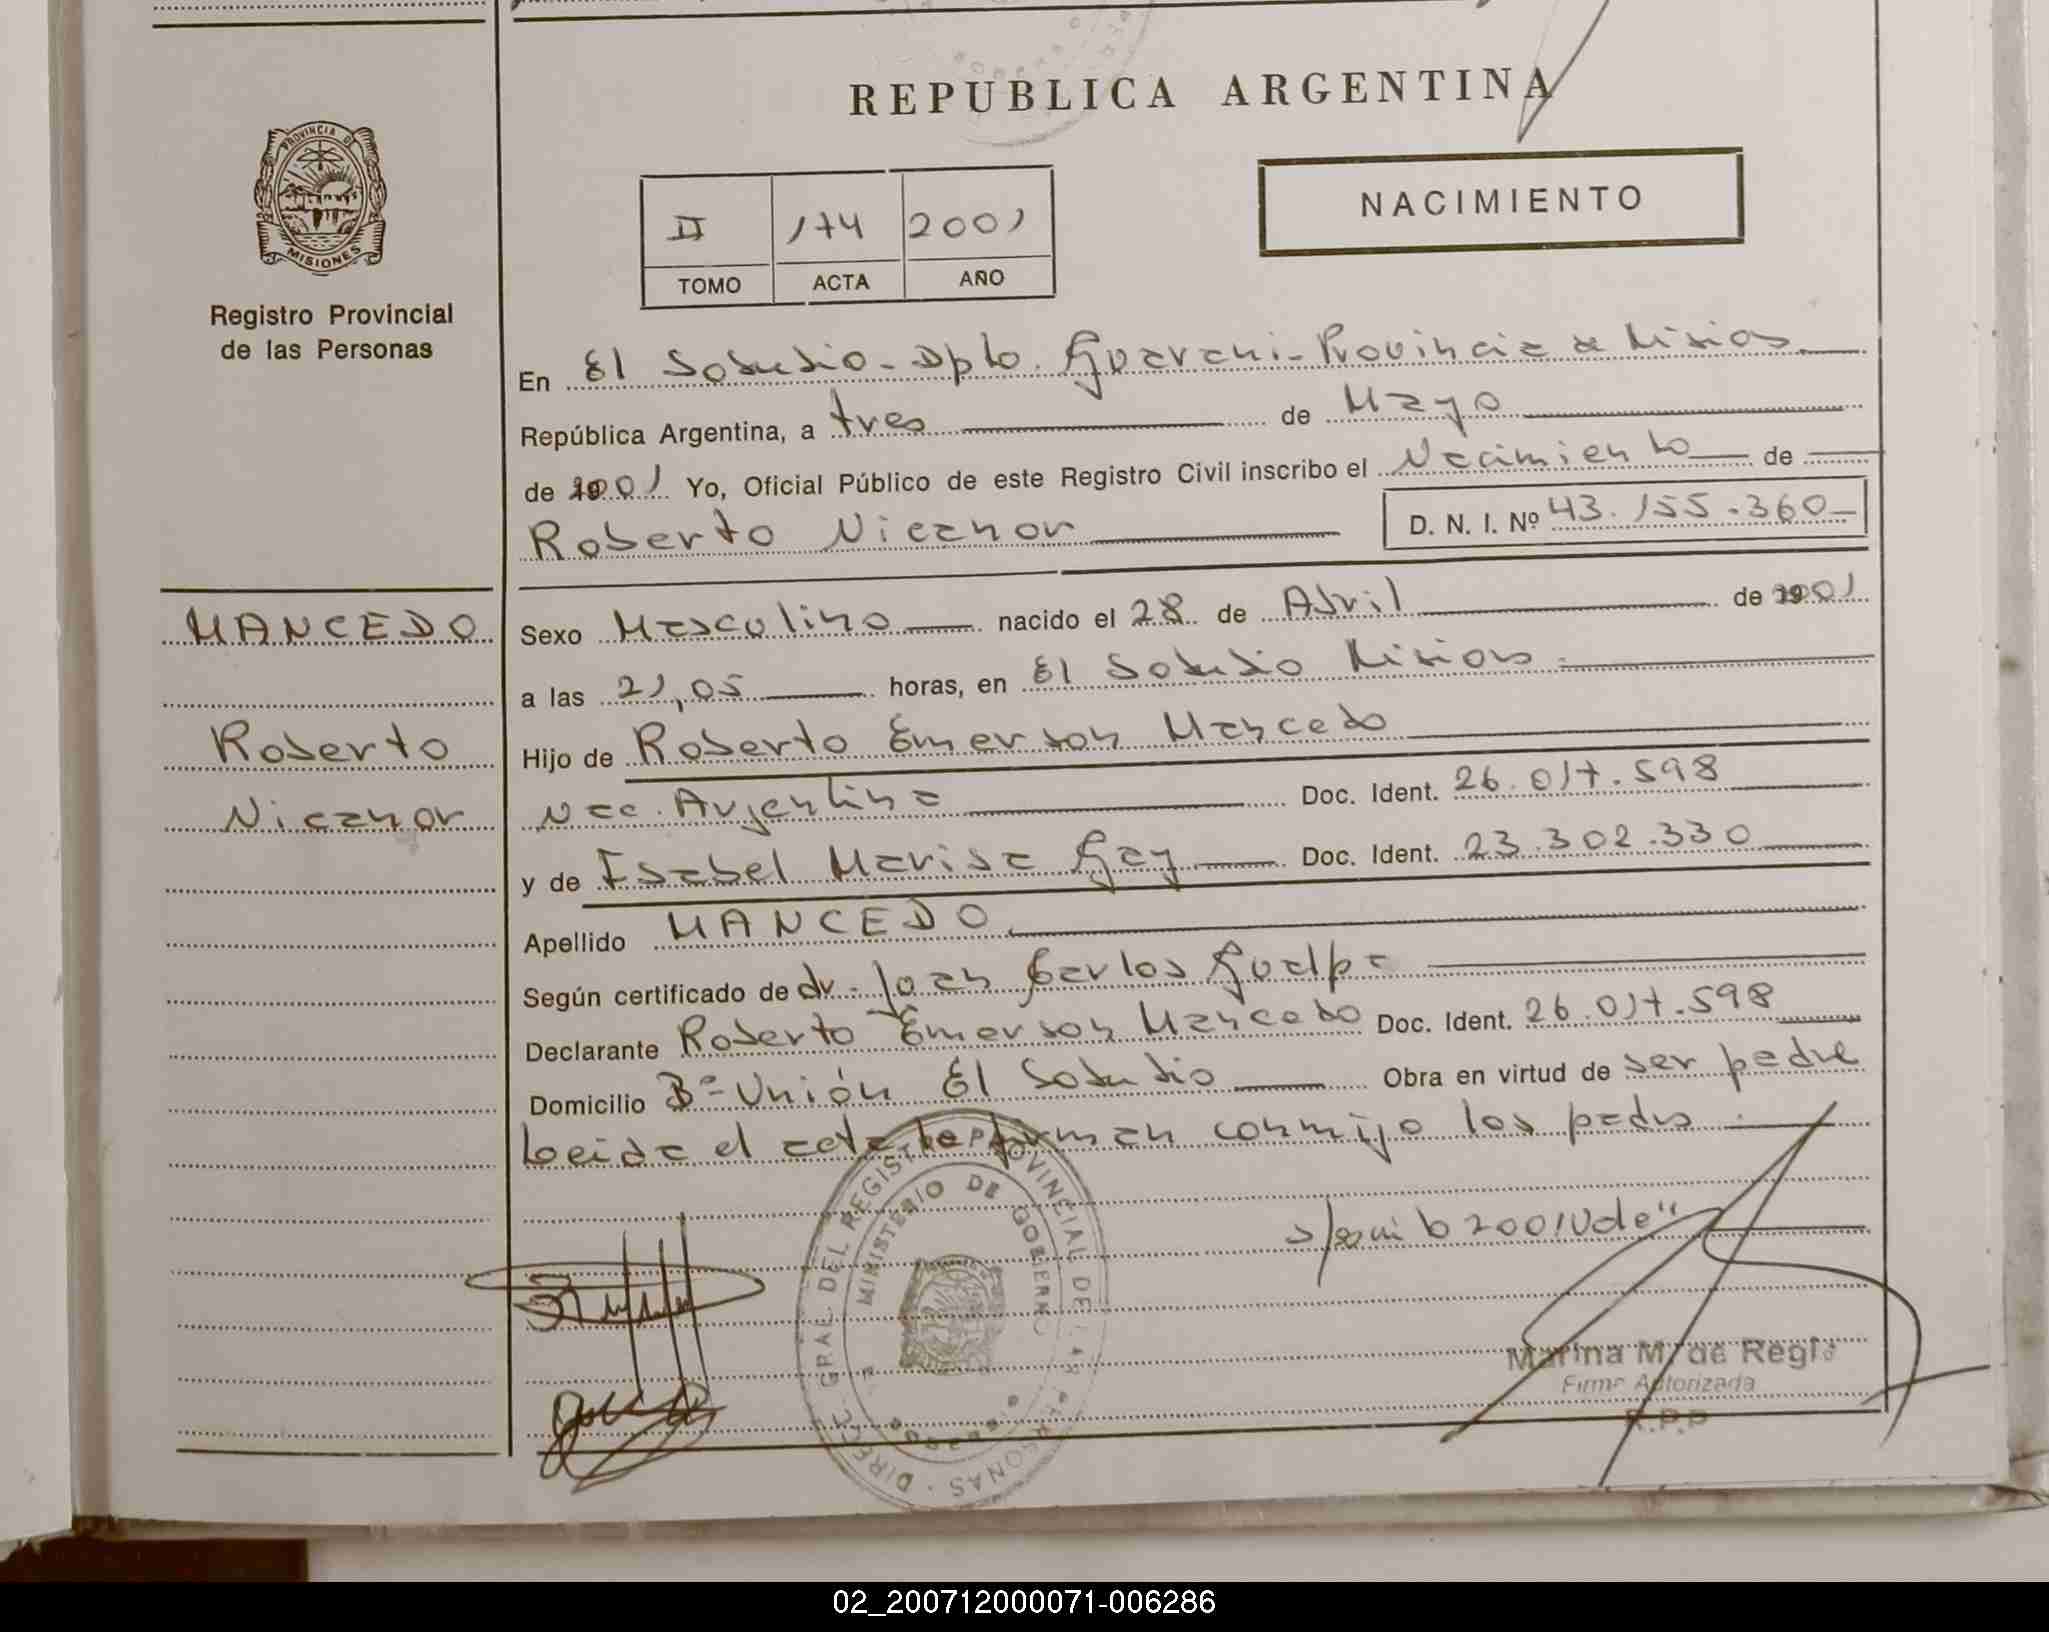 REPUBLICA ARGENTINA
PROVINCIA DE MISIONES
Registro Provincial
de las Personas
II 174 2001
TOMO ACTA AÑO
NACIMIENTO
En El Soberbio - Dpto. Guarani - Provincia de Misiones
República Argentina, a tres de Mayo
de 2001 Yo, Oficial Público de este Registro Civil inscribo el Nacimiento de
Roberto Nicanor D. N. I. Nº 43.155.360
MANCEDO
Roberto
Nicanor
Sexo Masculino nacido el 28 de Abril de 2001
a las 21,05 horas, en El Soberbio Misiones
Hijo de Roberto Emerson Mancedo
Nac. Argentina Doc. Ident. 26.017.598
y de Isabel Marisa Gay Doc. Ident. 23.302.330
Apellido MANCEDO
Según certificado de dr. Juan Carlos Gualpa
Declarante Roberto Emerson Mancedo Doc. Ident. 26.017.598
Domicilio Bº Unión El Soberbio Obra en virtud de ser padre
Leida el acta la firman conmigo los padres
2001 Vale"
DIREC. GRAL DEL REGISTRO PROVINCIAL DE LAS PERSONAS
MINISTERIO DE GOBIERNO
Marina M. de Regis
Firma Autorizada
R.P.P
02_200712000071-006286